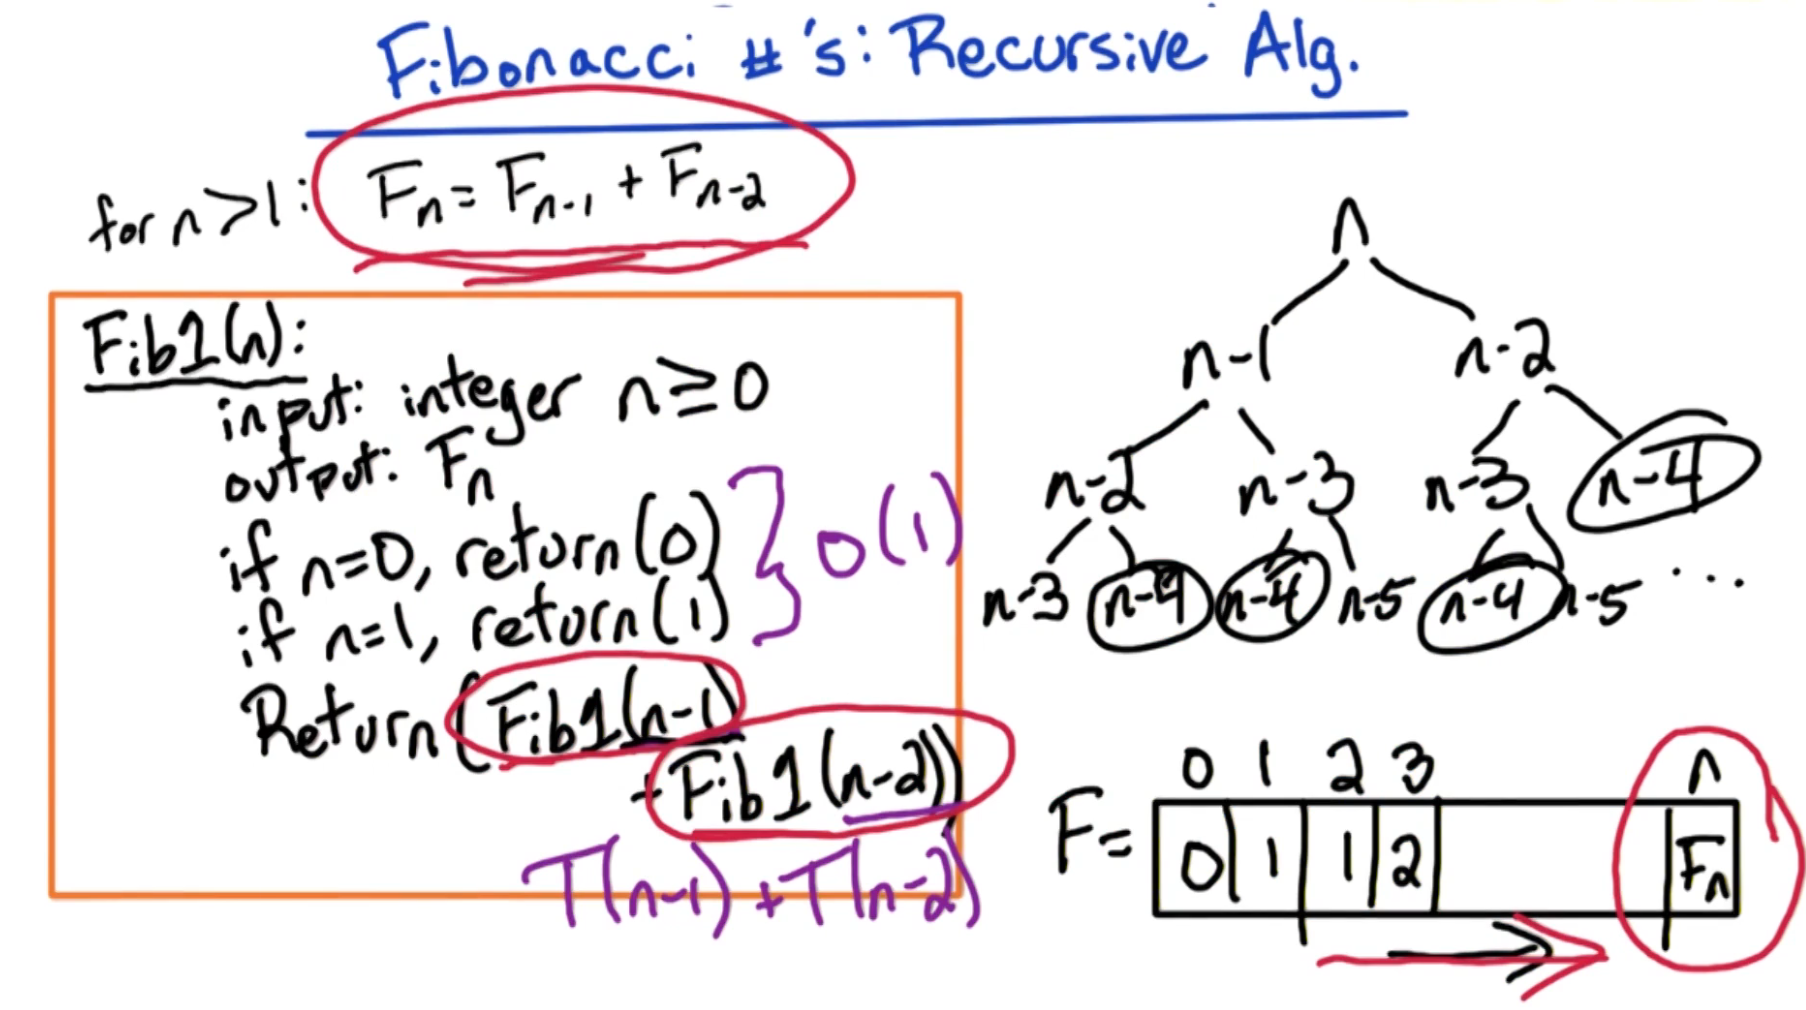 Fibonacci #'s: Recursive Alg.
for n>1: Fn = Fn-1 + Fn-2
Fib1(n):
input: integer n≥0
output: Fn
if n=0, return(0)
if n=1, return(1)
} O(1)
Return(Fib1(n-1)
+Fib1(n-2))
T(n-1)+T(n-2)
n
n-1 n-2
n-2 n-3 n-3 n-4
n-3 n-4 n-4 n-5 n-4 n-5 ...
0 1 2 3 n
F= 0 1 1 2 Fn